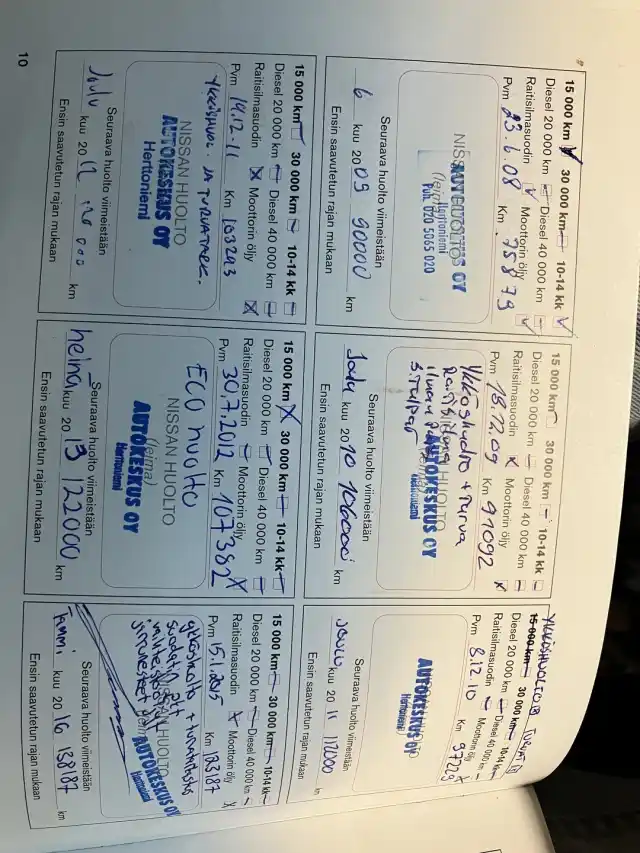 9
15 000 km ✓ 30 000 km 10-14 kk ✓
Diesel 20 000 km Diesel 40 000 km
Raitisilmasuodin ✓ Moottorin öljy ✓
Pvm 23.6.08 Km 75879
NISSAN HUOLTO
OY
Herttoniemi
Puh. 020 5965 020
Seuraava huolto viimeistään
6 kuu 2009 90000 km
Ensin saavutetun rajan mukaan
15 000 km 30 000 km 10-14 kk
Diesel 20 000 km Diesel 40 000 km
Raitisilmasuodin X Moottorin öljy X
Pvm 18.12.09 Km 91092
Ykköshuolto + Turva
HUOLTO
AUTOKESKUS OY
Herttoniemi
Seuraava huolto viimeistään
Joulu kuu 2010 106000 km
Ensin saavutetun rajan mukaan
YKKÖSHUOLTO
15 000 km 30 000 km 10-14 kk
Diesel 20 000 km Diesel 40 000 km
Raitisilmasuodin Moottorin öljy X
Pvm 8.12.10 Km
AUTOKESKUS OY
Herttoniemi
Seuraava huolto viimeistään
Joulu kuu 2011 112000 km
Ensin saavutetun rajan mukaan
15 000 km 30 000 km 10-14 kk
Diesel 20 000 km Diesel 40 000 km
Raitisilmasuodin X Moottorin öljy X
Pvm 19.12.11 Km 103293
Ykköshuol. ja TURVATARK.
NISSAN HUOLTO
AUTOKESKUS OY
Herttoniemi
Seuraava huolto viimeistään
Joulu kuu 2012 km
Ensin saavutetun rajan mukaan
15 000 km X 30 000 km 10-14 kk
Diesel 20 000 km Diesel 40 000 km
Raitisilmasuodin Moottorin öljy X
Pvm 30.7.2012 Km 107382
ECO huolto
NISSAN HUOLTO
(leima)
AUTOKESKUS OY
Herttoniemi
Seuraava huolto viimeistään
heinä kuu 2013 122000 km
Ensin saavutetun rajan mukaan
15 000 km 30 000 km 10-14 kk
Diesel 20 000 km Diesel 40 000 km
Raitisilmasuodin X Moottorin öljy X
Pvm 15.1.2015 Km 133187
ykköshuolto + turvatarkastus
HUOLTO
AUTOKESKUS OY
Herttoniemi
Seuraava huolto viimeistään
Tammi kuu 2016 138187 km
Ensin saavutetun rajan mukaan
10